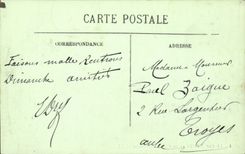 CARTE POSTALE
CORRESPONDANCE
ADRESSE
Faisons malle Rentrons
Dimanche amitiés
Madame
Paul Zaigue
2 Rue Largentier
Troyes
Aube